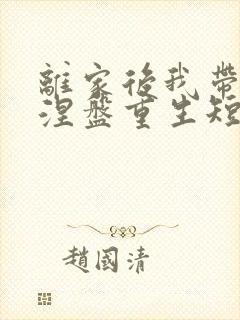 離家後我帶
涅盤重生短
趙國清